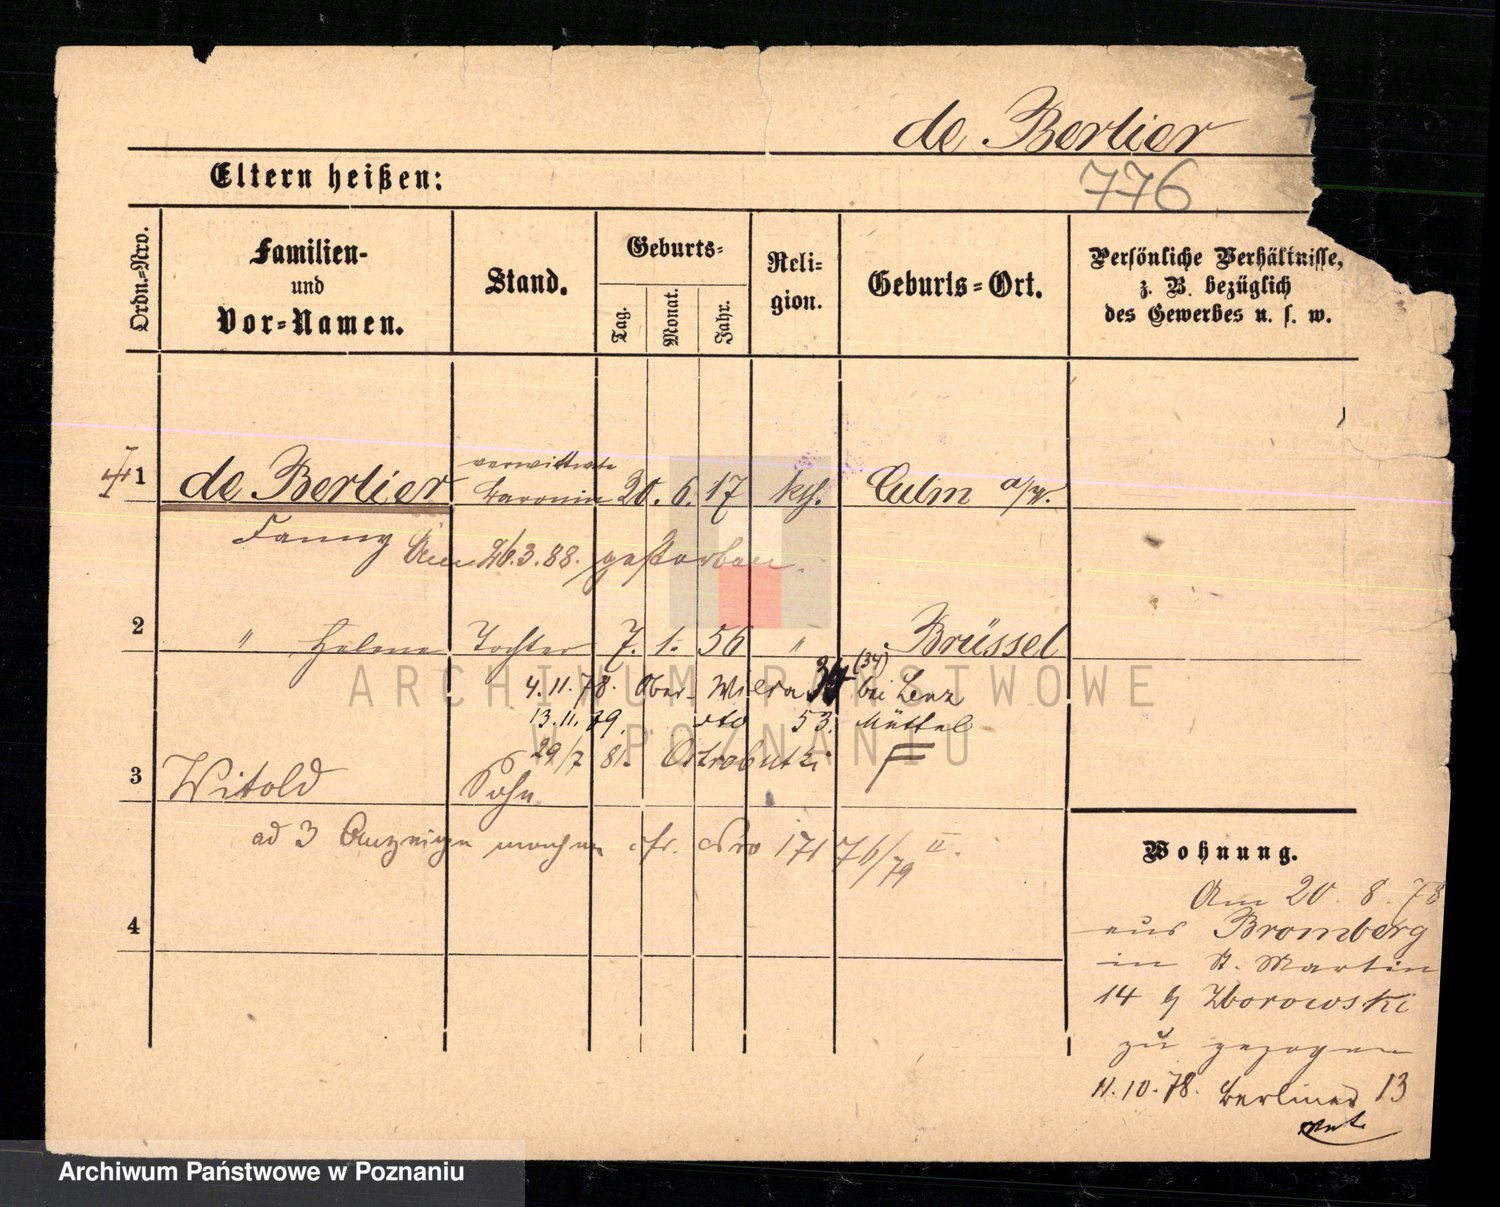 de Berlier
Eltern heißen:
776
Ordn.=Nro.
Familien-
und
Vor=Namen.
Stand.
Geburts=
Tag.
Monat.
Jahr.
Reli=
gion.
Geburts=Ort.
Persönliche Verhältnisse,
z. B. bezüglich
des Gewerbes u. s. w.
1 de Berlier verwittwete Baronin 20. 6. 17 kth. Culm a/W.
Fanny
Am 26.3.88. gestorben.
2 " Helene Tochter 7. 1. 56 " Brüssel
4.11.78. Ober-Wilda (34) bei Lenz
13.11.79. dto 53. Müttel
29/7 81. Ostrobutki
3 Witold Sohn
ad 3 Anzeigen machen cfr. Nro 171 76/79 II.
4
Wohnung.
Am 20. 8. 78
aus Bromberg
in St. Martin
14 b/ Zborowski
zu gezogen
11.10.78. Berliner 13
ARCHIWUM PAŃSTWOWE
W POZNANIU
Archiwum Państwowe w Poznaniu